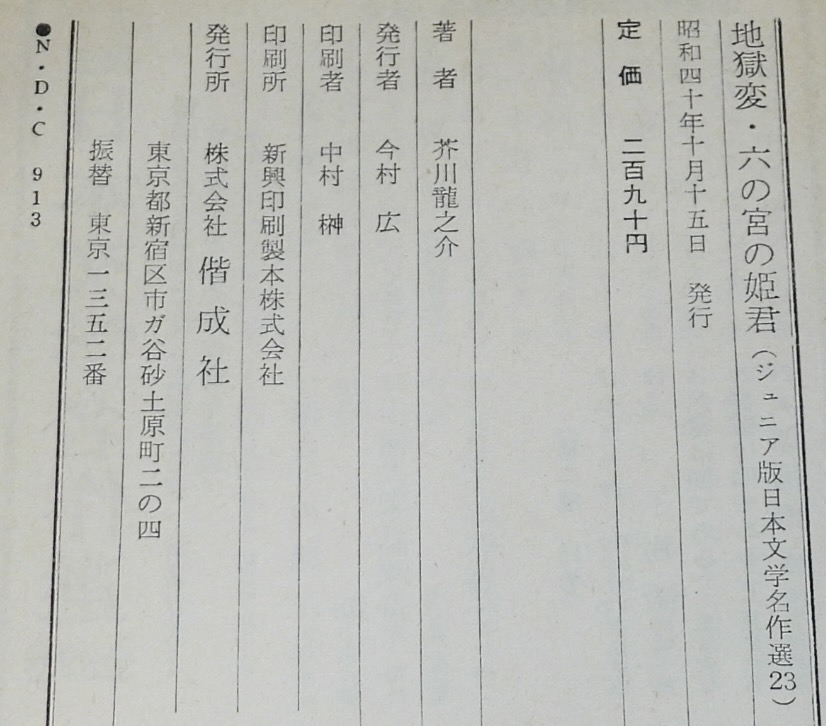 地獄変・六の宮の姫君（ジュニア版日本文学名作選23）
昭和四十年十月十五日 発行
定価 二百九十円
著者 芥川龍之介
発行者 今村 広
印刷者 中村 榊
印刷所 新興印刷製本株式会社
発行所 株式会社 偕成社
東京都新宿区市ガ谷砂土原町二の四
振替 東京一三五二番
●N・D・C 913